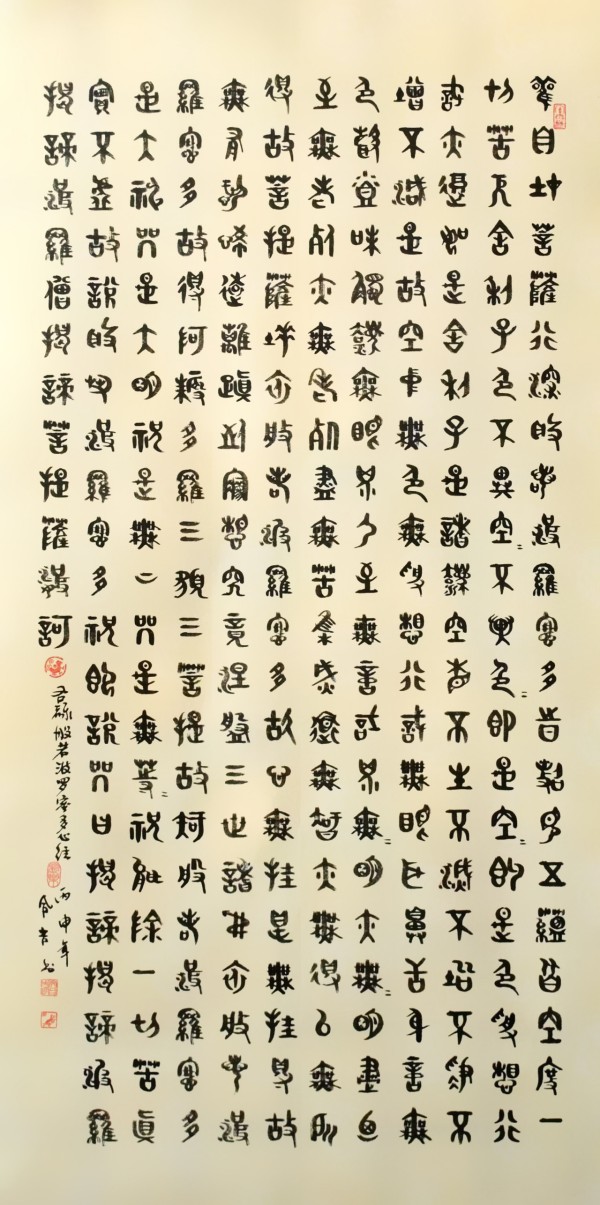 觀自在菩薩行深般若波羅蜜多時照見五蘊皆空度一
切苦厄舍利子色不異空=不異色=即是空=即是色受想行
識亦復如是舍利子是諸法空相不生不滅不垢不淨不
增不減是故空中無色無受想行識無眼耳鼻舌身意無
色聲香味觸法無眼界乃至無意識界無=明亦無=明盡乃
至無老死亦無老死盡無苦集滅道無智亦無得以無所
得故菩提薩埵依般若波羅蜜多故心無挂礙無挂礙故
無有恐怖遠離顛倒夢想究竟涅槃三世諸佛依般若波
羅蜜多故得阿耨多羅三藐三菩提故知般若波羅蜜多
是大祝咒是大明祝是無上咒是無等=祝能除一切苦真
實不虛故說般若波羅蜜多祝即說咒曰揭諦揭諦波羅
揭諦波羅僧揭諦菩提薩婆訶
般若波罗蜜多心经
丙申年